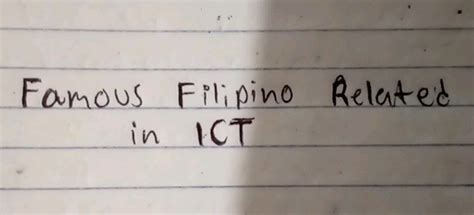 Famous Filipino Related
in ICT